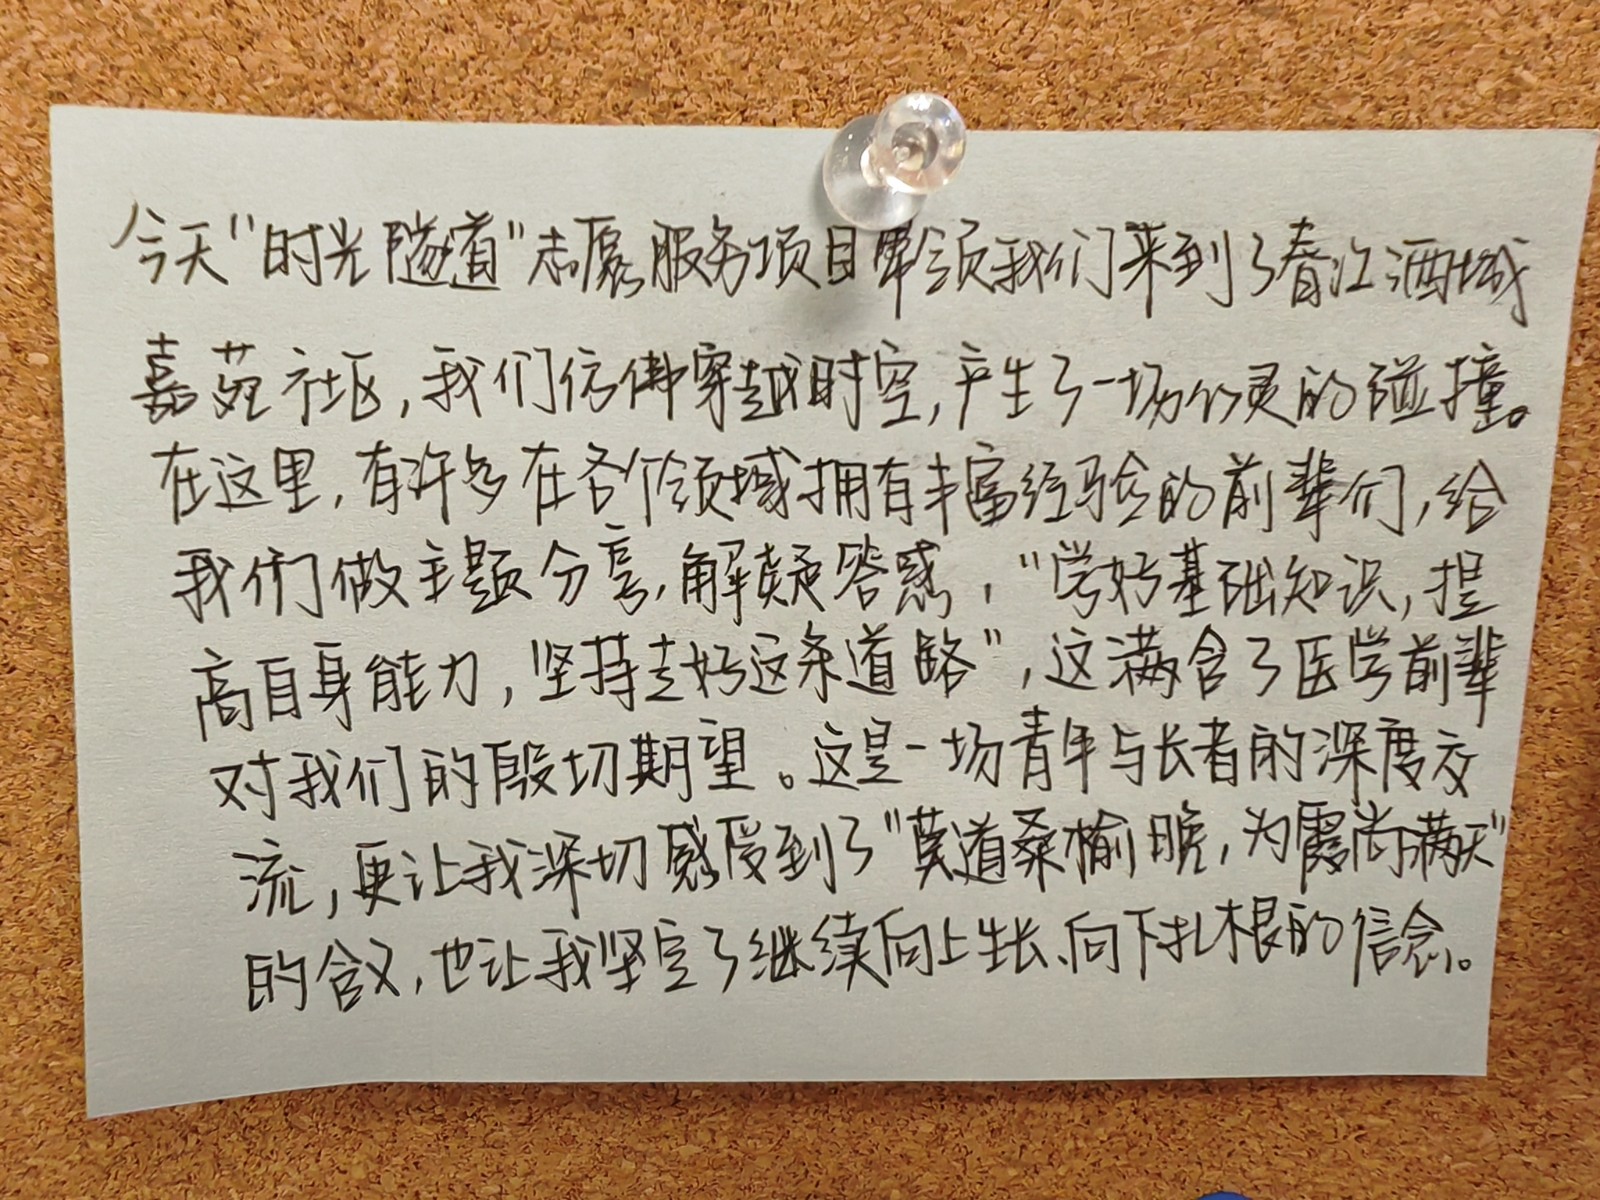 今天"时光隧道"志愿服务项目带领我们来到了春江酒城
嘉苑社区,我们仿佛穿越时空,产生了一场心灵的碰撞。
在这里,有许多在各个领域拥有丰富经验的前辈们,给
我们做主题分享,解疑答惑,"学好基础知识,提
高自身能力,坚持走好这条道路",这满含了医学前辈
对我们的殷切期望。这是一场青年与长者的深度交
流,更让我深切感受到了"莫道桑榆晚,为霞尚满天"
的含义,也让我坚定了继续向上生长、向下扎根的信念。